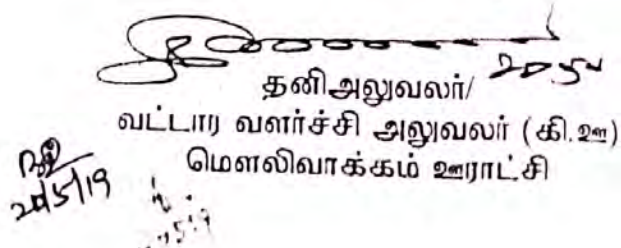 20/5
தனிஅலுவலர்/
வட்டார வளர்ச்சி அலுவலர் (கி.ஊ)
மௌலிவாக்கம் ஊராட்சி
20/5/19